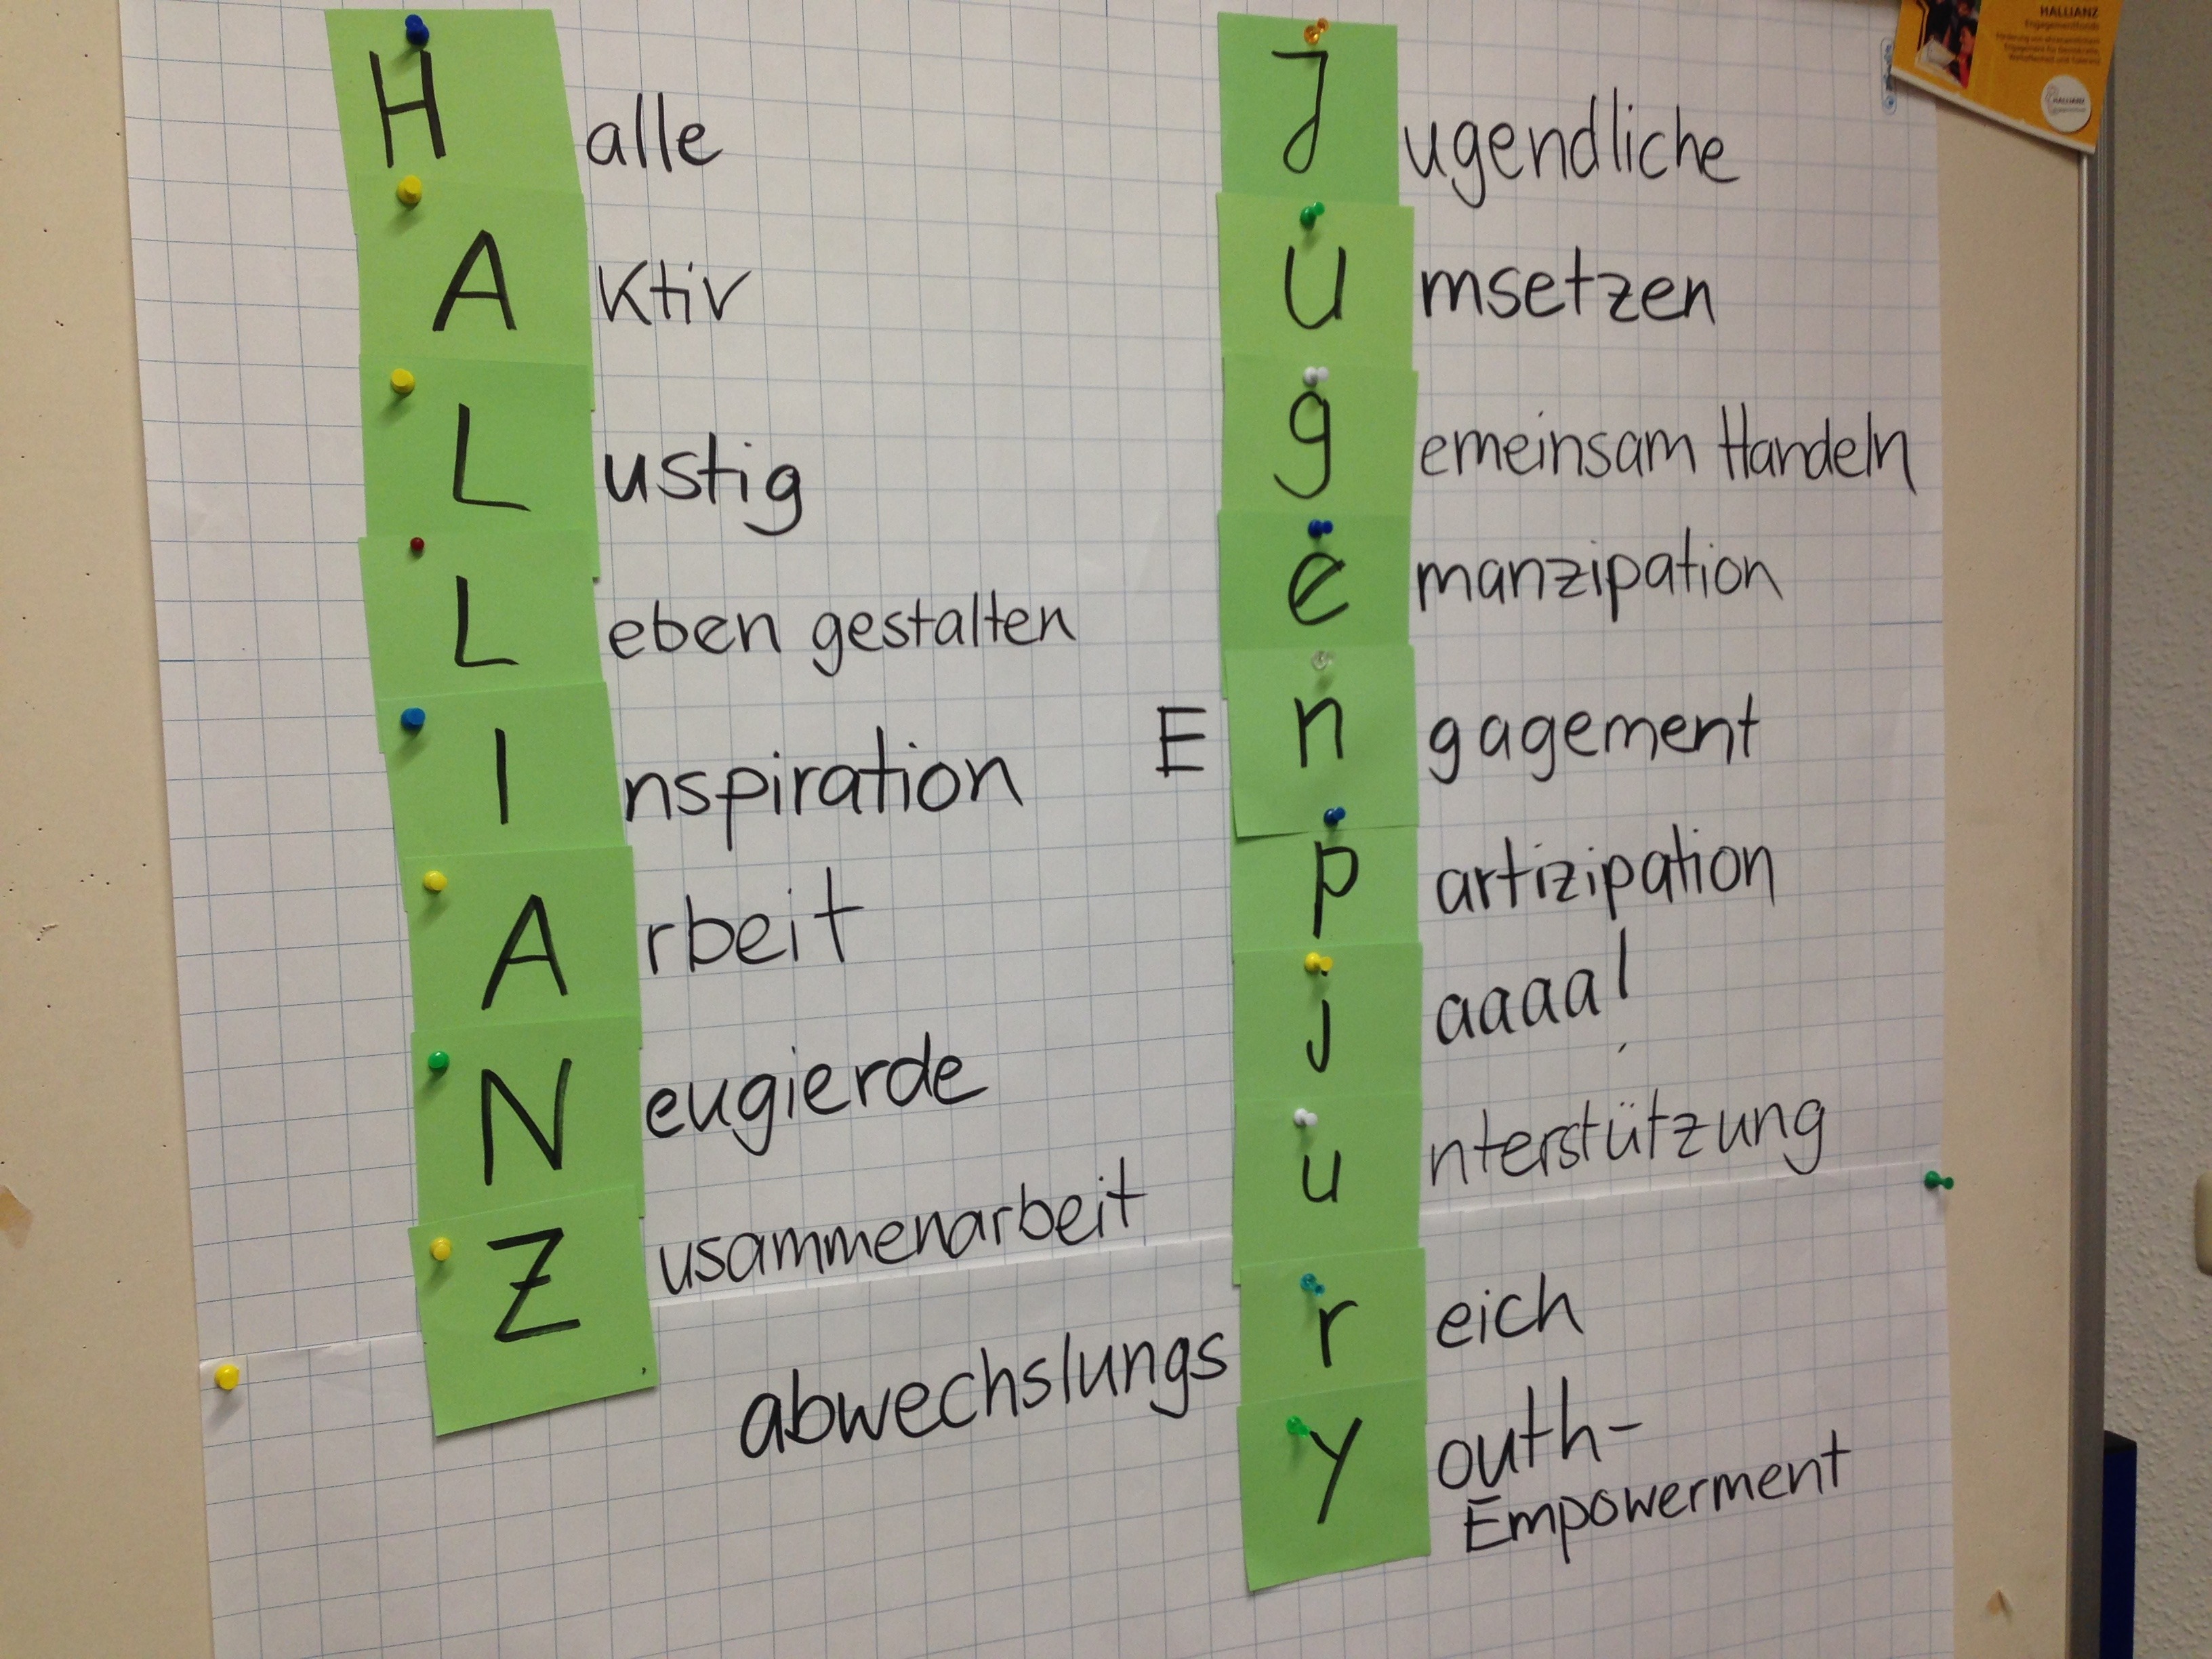 Halle
AKtiv
Lustig
Leben gestalten
Inspiration
Arbeit
Neugierde
Zusammenarbeit
Jugendliche
Umsetzen
gemeinsam Handeln
emanzipation
Engagement
partizipation
jaaaa!
unterstützung
abwechslungsreich
youth-
Empowerment
HALLIANZ
Engagementfonds
HALLIANZ